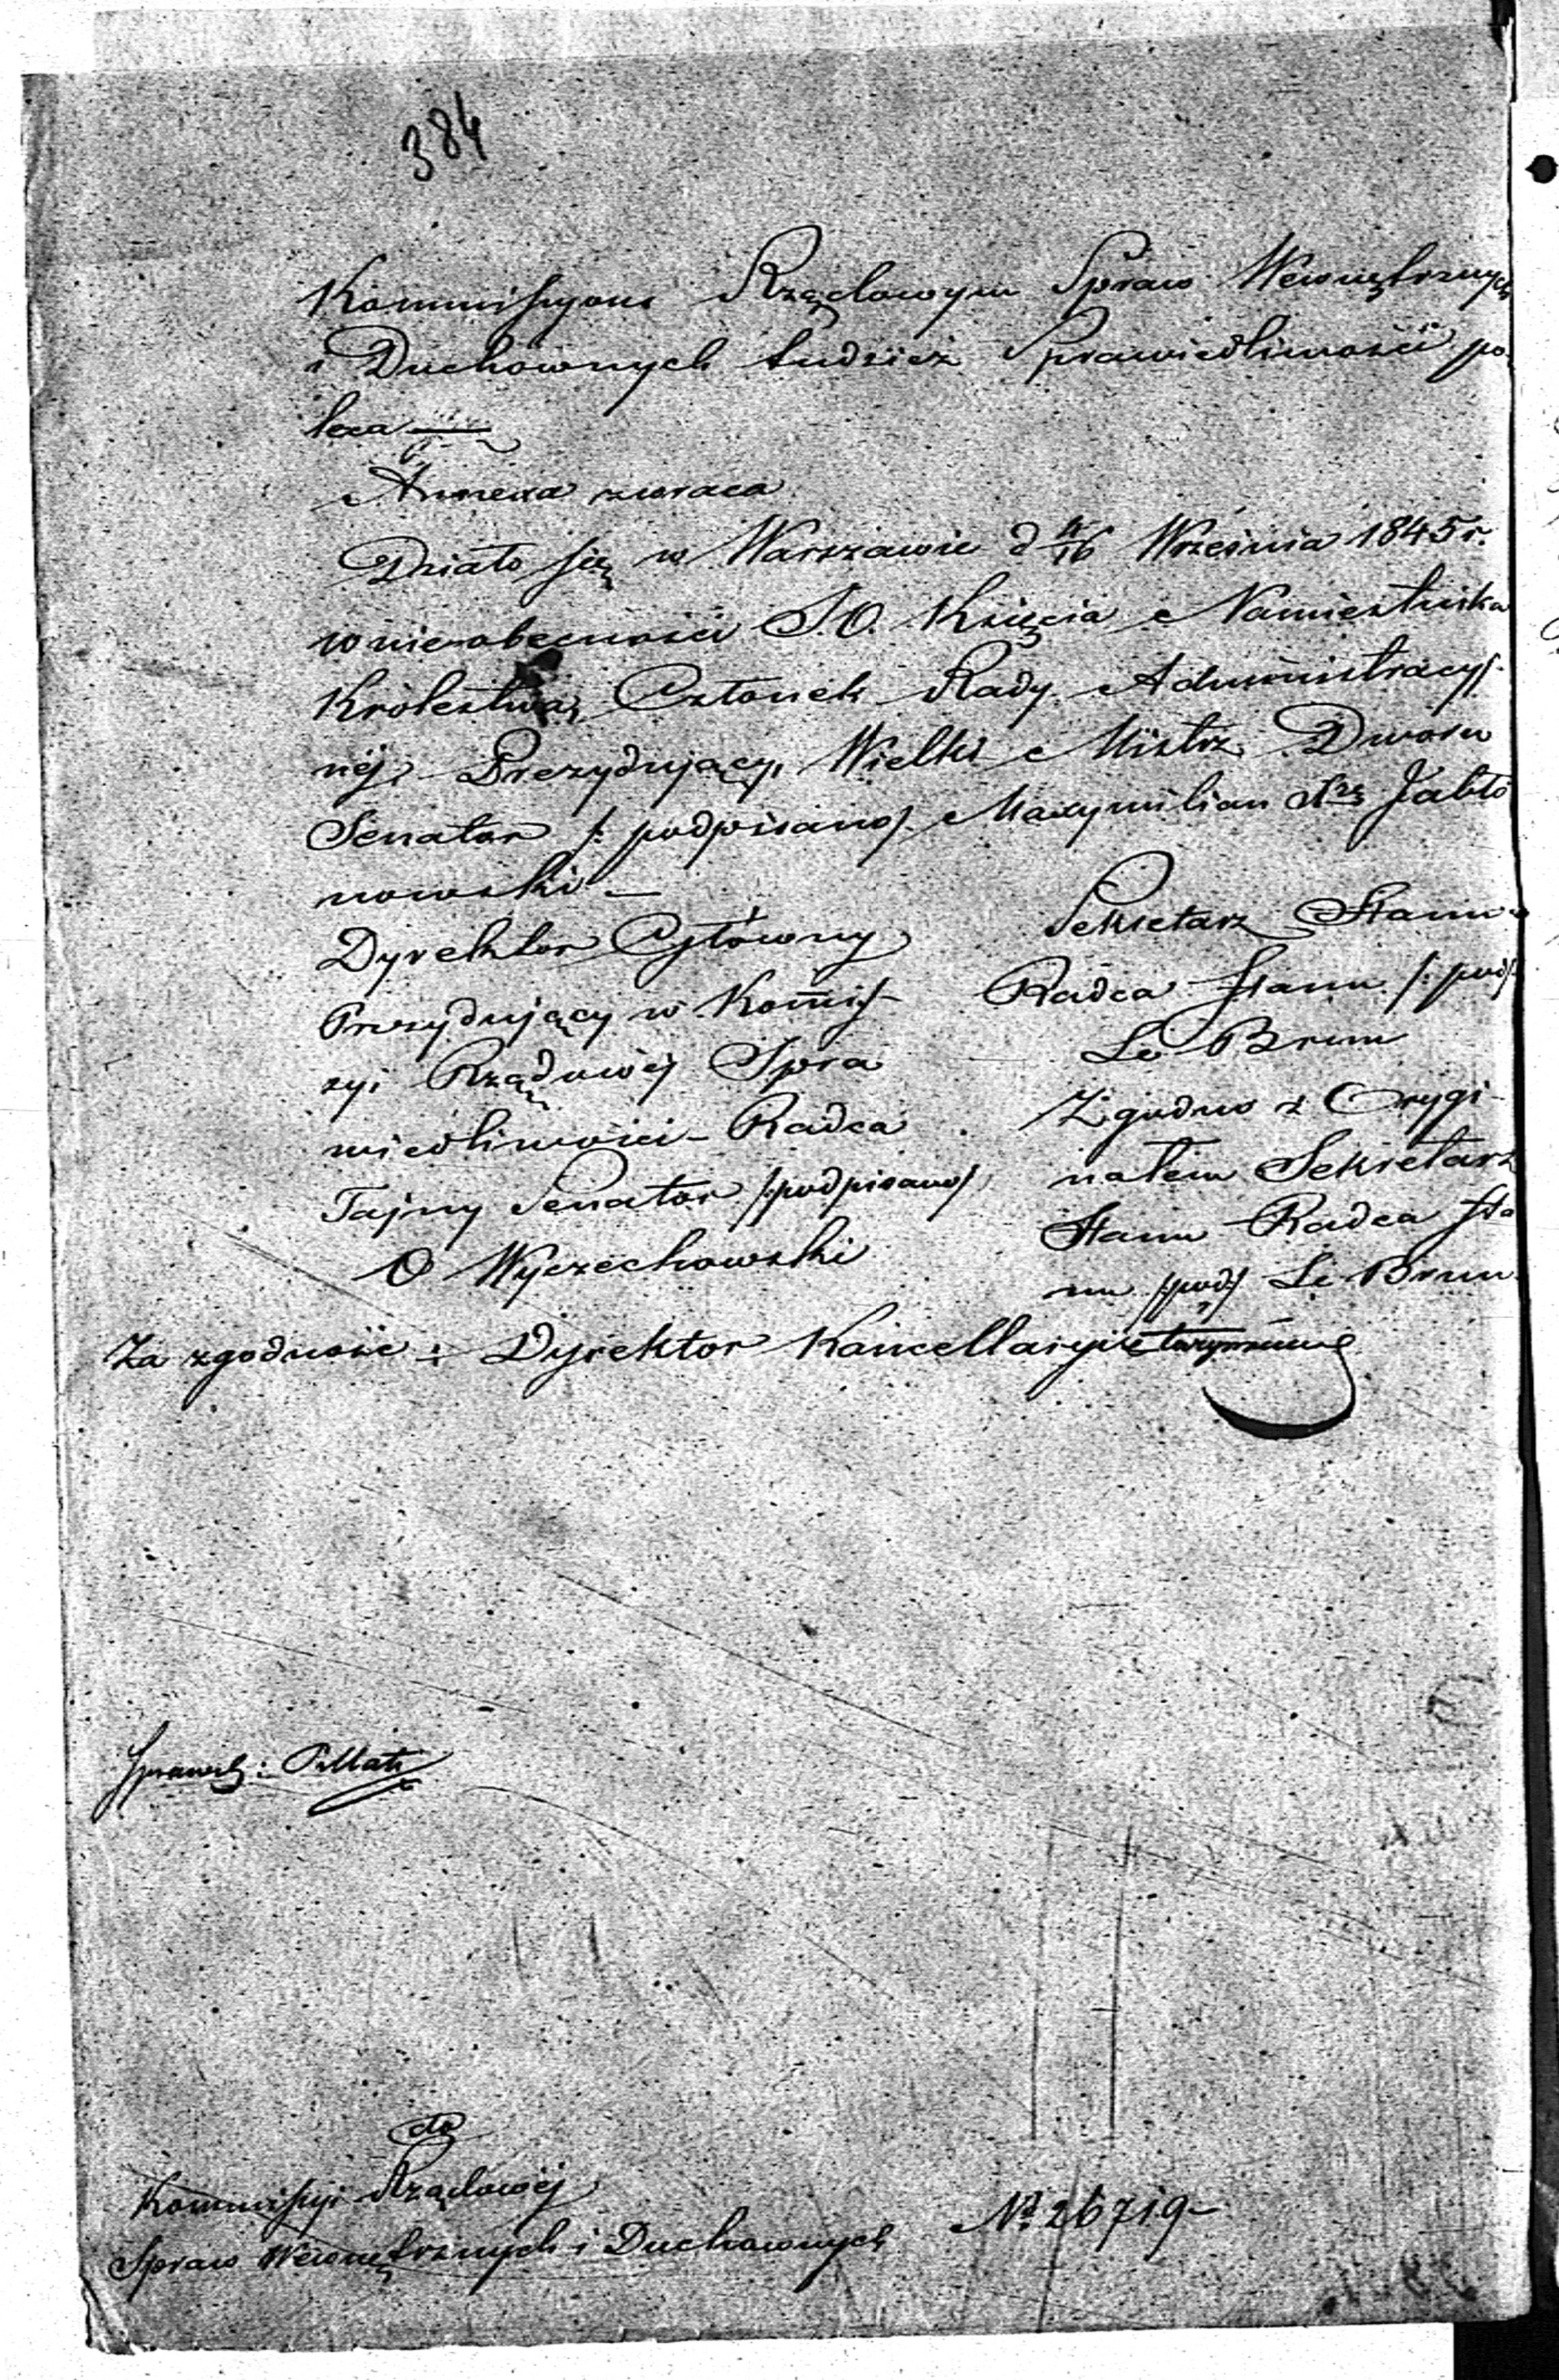 384
Kommissyom Rządowym Spraw Wewnętrznych
i Duchownych tudzież Sprawiedliwości po
leca
Annexa zwraca
Działo się w Warszawie d 4/16 Września 1845 r.
w nieobecności J.O. Księcia Namiestnika
Królestwa, Członek Rady Administracyj
néj Prezydujący, Wielki Mistrz Dworu
Senator /: podpisano/ Maxymilian Xże Jabło
nowski —
Dyrektor Główny
Prezydujący w Kom̄is
syi Rządowéj Spra
wiedliwości Radca
Tajny Senator /:podpisano/
O Wyczechowski
Sekretarz Stanu
Radca Stanu /: pod/
Le Brun
Zgodno z Orygi-
nałem Sekretarz
Stanu Radca Sta
nu /:pod:/ Le Brun
Za zgodność: Dyrektor Kancellaryi
Sprawdz:
do
Kommissyi Rządowéj
Spraw Wewnętrznych i Duchownych
No 26719